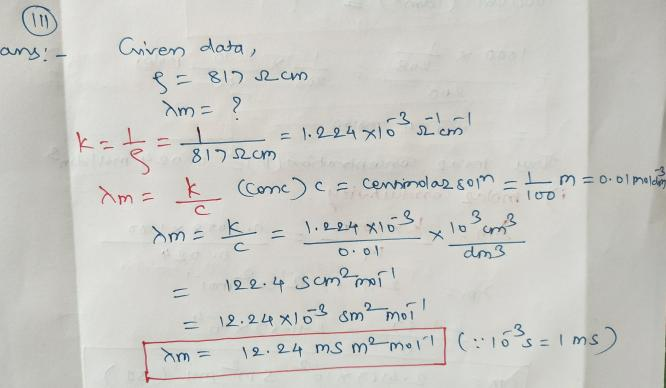 (111)
ans:- Given data,
ρ = 817 Ω cm
λm = ?
K = 1/ρ = 1/817 Ω cm = 1.224 × 10⁻³ Ω⁻¹ cm⁻¹
λm = k/c (conc) c = centimolar solⁿ = 1/100 m = 0.01 mol dm⁻³
λm = k/c = 1.224 × 10⁻³/0.01 × 10³ cm³/dm3
= 122.4 scm² mol⁻¹
= 12.24 × 10⁻³ sm² mol⁻¹
λm = 12.24 ms m² mol⁻¹ (∵ 10⁻³ s = 1 ms)